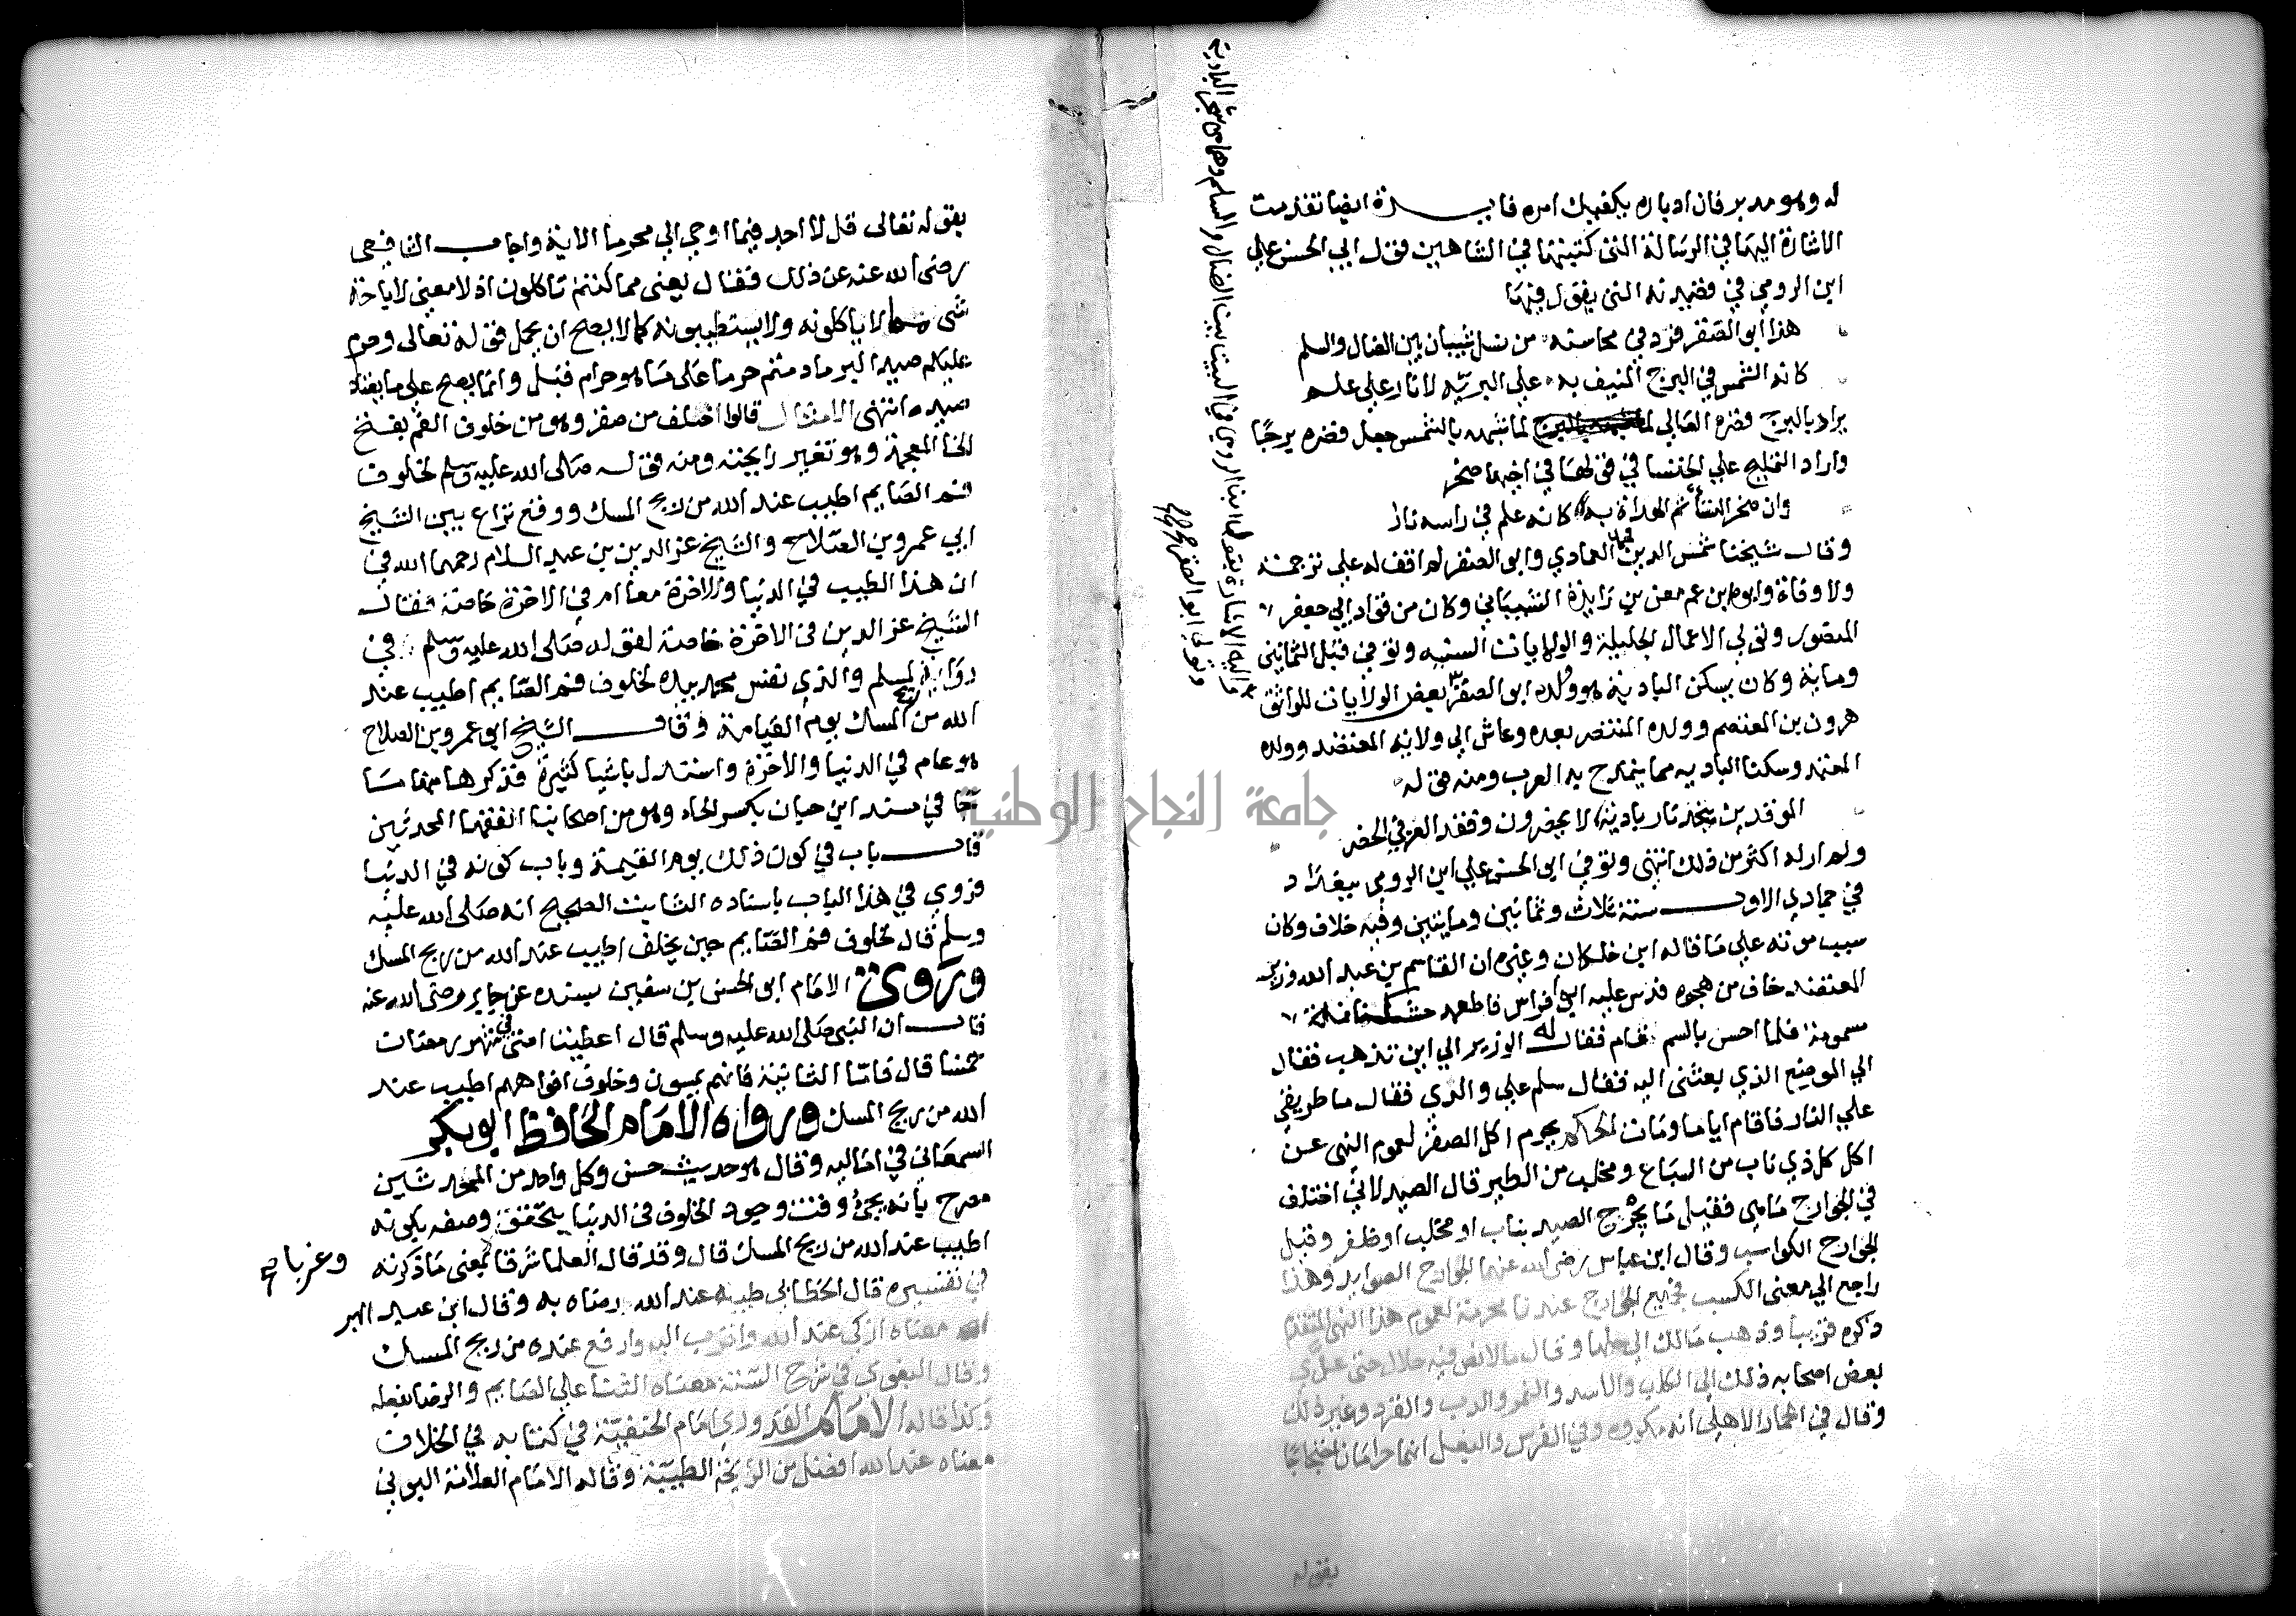 له وهو مدبر فان ادباره يكفيك امره فايـــدة ايضا تقدمت
الاشارة اليها في الرسالة التي كتبتها في الشاهين قول ابي الحسن علي
ابن الرومي في قصيدته التي يقول فيها
هذا ابو الصقر فرد في محاسنه من نسل شيبان بين الضال والسلم
كانه الشمس في البرج المنيف به على البرية لا نار على علم
يراد بالبرج قصره العالي لما شبهه بالشمس جعل قصره برجا
واراد التمليح على الخنسا في قولها في اخيها صخر
وان صخر التأتم الهداة به كانه علم في راسه نار
وقال شيخنا شمس الدين محمد العمادي وابو الصقر لم اقف له على ترجمة
ولا وفاة وابوه ابن عم معن بن زايدة الشيباني وكان من قواد ابي جعفر
المنصور وتولي الاعمال الجليلة والولايات السنيه وتوفي قبل الثمانين
وماية وكان يسكن البادية هو وولده ابو الصقر بعض الولايات للواثق
هرون بن المعتصم وولده المنتصر بعده وعاش الى ولاية المعتضد وولده
المعتمد وسكنا الباديه مما يتمدح به العرب ومنه قوله
الموقدين بنجد نار بادية لا يحضرون وفقد العز في الحضر
ولم ار له اكثر من ذلك انتهى وتوفي ابي الحسن علي ابن الرومي ببغداد
في جمادي الاولـــ سنة ثلاث وثمانين ومايتين وفيه خلاف وكان
سبب موته على ما قاله ابن خلكان وغيره ان القاسم بن عبد الله وزير
المعتضد خاف من هجوه فدس عليه ابن فراس فاطعمه خشكنانة
مسمومة فلما احس بالسم قام فقال له الوزير الي اين تذهب فقال
الي الموضع الذي بعثتني اليه فقال سلم علي والدي فقال ما طريقي
علي النار فاقام اياما ومات الحكم يحرم اكل الصقر لعموم النهى عن
اكل كل ذي ناب من السباع ومخلب من الطير قال الصيدلاني اختلف
في الجوارح ما هي فقيل ما يجرح الصيد بناب او مخلب او ظفر وقيل
الجوارح الكواسب وقال ابن عباس رضى الله عنهما الجوارح الصوايد وهذا
راجع الي معنى الكسب فجميع الجوارح عندنا محرمة لعموم هذا النهى المتقدم
ذكره قريبا وذهب مالك الى حلها وقال ما لا نص فيه حلال حتى عدي
بعض اصحابه ذلك الى الكلب والاسد والنمر والدب والقرد وغير ذلك
وقال في الحمار الاهلى انه مكروه وفي الفرس والبغل انهما حرامان احتجاجا
بقوله
واليه الاشارة بقولها ابن الرومي في البيت بيت الضال والسلم وهما من شجر البادية
وتولي ابو الصقر
بقوله تعالى قل لا اجد فيما اوحي الي محرما الاية واجاب الشافعى
رضى الله عنه عن ذلك فقال يعنى مما كنتم تاكلون اذ لا معني لاباحة
شى لا ياكلونه ولا يستطيبونه كما لا يصح ان يحمل قوله تعالى وحرم
عليكم صيد البر ما دمتم حرما على ما هو حرام قبل وانما يصح على ما يعتاد
صيده انتهى الامثال قالوا اخلف من صقر وهو من خلوف الفم بفتح
الخا المعجمة وهو تغير رايحته ومنه قوله صلى الله عليه وسلم لخلوف
فم الصايم اطيب عند الله من ريح المسك ووقع نزاع بين الشيخ
ابي عمرو بن الصلاح والشيخ عز الدين بن عبد السلام رحمهما الله في
ان هذا الطيب في الدنيا والاخرة معا ام في الاخرة خاصة فقال
الشيخ عز الدين في الاخرة خاصة لقوله صلى الله عليه وسلم في
رواية لمسلم والذي نفس محمد بيده لخلوف فم الصايم اطيب عند
الله من ريح المسك يوم القيامة وقالـــ الشيخ ابي عمرو بن الصلاح
هو عام في الدنيا والاخرة واستدل باشيا كثيرة فذكر ها منها ما
جا في مسند ابن حبان بكسر الحاء وهو من اصحابنا الفقها المحدثين
قالـــ باب في كون ذلك يوم القيمة وباب كونه في الدنيا
فروي في هذا الباب باسناده الثابت الصحيح انه صلى الله عليه
وسلم قال لخلوف فم الصايم حين يخلف اطيب عند الله من ريح المسك
وروى الامام ابو الحسن بن سفين بسنده عن جابر رضى الله عنه
قالـــ ان النبي صلى الله عليه وسلم قال اعطيت امتى في شهر رمضان
خمسا قال فاما الثانية فانهم يمسون وخلوف افواههم اطيب عند
الله من ريح المسك ورواه الامام الحافظ ابو بكر
السمعاني في اماليه وقال هو حديث حسن وكل واحد من المحدثين
مصرح بانه يجئ وقت وجود الخلوف في الدنيا يتحقق وصفه بكونه
اطيب عند الله من ريح المسك قال وقد قال العلما شرقا وغربا بمعنى ما ذكرته
في تفسيره قال الخطابي طيبه عند الله رضاه به وقال ابن عبد البر
معناه ازكى عند الله واقرب اليه وارفع عنده من ريح المسك
وقال البغوي في شرح السنة معناه الثنا على الصايم والرضا بفعله
وكذا قاله الامام القدوري امام الحنفية في كتابه في الخلاف
معناه عند الله افضل من الرايحة الطيبة وقاله الامام العلامة البوني
جامعة النجاح الوطنية